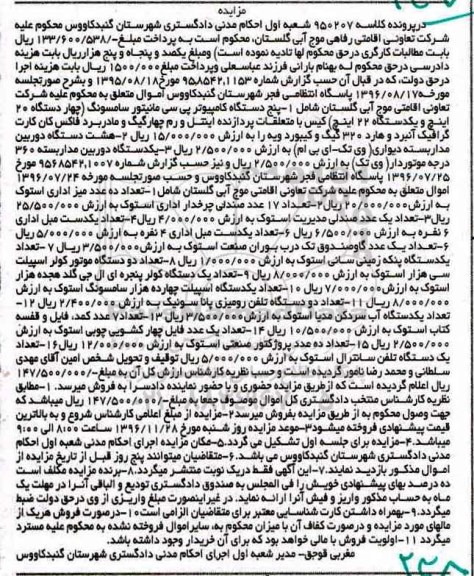 مزایده
درپرونده کلاسه ۹۵۰۲۰۷ شعبه اول احکام مدنی دادگستری شهرستان گنبدکاووس محکوم علیه
شرکت تعاونی اقامتی رفاهی موج آبی گلستان، محکوم است به پرداخت مبلغ ۱۳۳/۶۰۰/۵۳۸/- ریال
بابت مطالبات کارگری درحق محکوم لها تادیه نموده است) ومبلغ یکصد و پنجاه و پنج هزارریال بابت هزینه
دادرسی درحق محکوم لـه بهنام بارانی فرزند عباسعلی وپرداخت مبلغ ۱۵۰۰/۰۰۰ ریال بابت هزینه اجرا
درحق دولت، که در قبال آن حسب گزارش شماره ۹۵۸۵۴۲,۱۱۵۳ مورخ ۱۳۹۵/۰۸/۱۸ و بشرح صورتجلسه
مورخه ۱۳۹۶/۰۸/۱۷ پاسگاه انتظامی فجر شهرستان گنبدکاووس اموال متعلق به محکوم علیه شرکت
تعاونی اقامتی موج آبی گلستان شامل ۱-پنج دستگاه کامپیوتر پی سی مانیتور سامسونگ (چهار دستگاه ۲۰
اینچ و یکدستگاه ۲۲ اینچ) کیس با متعلقات پردازنده اینتل و رم چهارگیگ و مادربرد فاکس کان کارت
گرافیک آنبرد و هارد ۳۲۰ گیگ و کیبورد ویه را به ارزش ۱۵/۰۰۰/۰۰۰ ریال ۲-هشت دستگاه دوربین
مداربسته دیواری( وی تک-ای بی ام) به ارزش ۲/۵۰۰/۰۰۰ ریال ۳-یکدستگاه دوربین مداربسته ۳۶۰
درجه موتوردار( وی تک) به ارزش ۲/۵۰۰/۰۰۰ ریال و نیز حسب گزارش شماره ۹۵۶۸۵۴۲,۱۰۰۷ مورخ
۱۳۹۶/۰۷/۲۵ پاسگاه انتظامی فجر شهرستان گنبدکاووس و حسب صورتجلسه مورخه ۱۳۹۶/۰۷/۲۴
اموال متعلق به محکوم علیه شرکت تعاونی اقامتی موج آبی گلستان شامل ۱-تعداد ده عدد میز اداری استوک
به ارزش ۲۰/۰۰۰/۰۰۰ ریال ۲-تعداد ۱۷ عدد صندلی چرخدار اداری استوک به ارزش ۲۵/۵۰۰/۰۰۰
ریال ۳-تعداد یک عدد صندلی مدیریت استوک به ارزش ۴/۰۰۰/۰۰۰ ریال ۴-تعداد یکدست مبل اداری
۶ نفره به ارزش ۶/۵۰۰/۰۰۰ ریال ۵-تعداد یکدست مبل اداری ۴ نفره به ارزش ۵/۰۰۰/۰۰۰ ریال
۶-تعداد یک عدد گاوصندوق تک درب بوران صنعت استوک به ارزش ۳/۵۰۰/۰۰۰ ریال ۷-تعداد
یکدستگاه پنکه زمینی سانی استوک به ارزش ۱/۰۰۰/۰۰۰ ریال ۸-تعداد دو دستگاه موتور کولر اسپیلت
سی هزار استوک به ارزش ۸/۰۰۰/۰۰۰ ریال ۹-تعداد یک دستگاه کولر پنجره ای ال جی گلد هجده هزار
استوک به ارزش ۷/۰۰۰/۰۰۰ ریال ۱۰-تعداد یکدستگاه اسپیلت چهارده هزار سامسونگ استوک به ارزش
۸/۰۰۰/۰۰۰ ریال ۱۱-تعداد دو دستگاه تلفن رومیزی پانا سونیک به ارزش ۲/۴۰۰/۰۰۰ ریال ۱۲-
تعداد یکدستگاه آب سردکن مدیا استوک به ارزش ۳/۵۰۰/۰۰۰ ریال ۱۳-تعداد ۷ عدد کمد، فایل و قفسه
کتاب استوک به ارزش ۱۰/۵۰۰/۰۰۰ ریال ۱۴-تعداد یک عدد فایل چهار کشویی چوبی استوک به ارزش
۲/۵۰۰/۰۰۰ ریال ۱۵-تعداد ده عدد پروژکتور صنعتی استوک به ارزش ۱۲/۰۰۰/۰۰۰ ریال ۱۶-تعداد
یک دستگاه تلفن سانترال استوک به ارزش ۵/۰۰۰/۰۰۰ ریال توقیف و تحویل شخص امین آقای مهدی
سلمانی و محمد رضا نامور گردیده است و حسب نظریه کارشناس ارزش کل آن به مبلغ ۱۴۷/۵۰۰/۰۰۰/-
ریال اعلام گردیده است که ازطریق مزایده حضوری و با حضور نماینده دادسرا به فروش میرسد. ۱-مطابق
نظریه کارشناس منتخب دادگستری کل اموال موصوف جمعا به مبلغ ۱۴۷/۵۰۰/۰۰۰/- ریال میباشد که
جهت وصول محکوم به از طریق مزایده بفروش میرسد ۲-مزایده از مبلغ اعلامی کارشناس شروع و به بالاترین
قیمت پیشنهادی فروخته میشود ۳-موعد مزایده روز شنبه مورخ ۱۳۹۶/۱۱/۲۸ ساعت ۸:۰۰ الی ۹:۰۰
میباشد.۴-مزایده برای جلسه اول تشکیل می گردد.۵-مکان مزایده اجرای احکام مدنی شعبه اول احکام
مدنی دادگستری شهرستان گنبدکاووس می باشد.۶-متقاضیان میتوانند پنج روز قبل از تاریخ مزایده از
اموال مذکور بازدید نمایند.۷-این آگهی فقط دریک نوبت منتشر میگردد.۸-برنده مزایده مکلف است
ده درصد بهای پیشنهادی خویش را فی المجلس به صندوق دادگستری تودیع و الباقی آنرا در مهلت یک
ماه به حساب مذکور واریز و فیش آنرا ارائه نماید. در غیراینصورت مبلغ واریزی از وی درحق دولت ضبط
میگردد.۹-بهمراه داشتن کارت شناسایی معتبر برای متقاضیان الزامی است ۱۰-درصورت فروش هریک از
مالهای مورد مزایده و درصورت کفاف آن با میزان محکوم به، سایراموال فروخته نشده به محکوم علیه مسترد
میگردد ۱۱-اولویت فروش با مالی خواهد بود که برای آن خریدار وجود داشته باشد.
مغربی قوجق- مدیر شعبه اول اجرای احکام مدنی دادگستری شهرستان گنبدکاووس